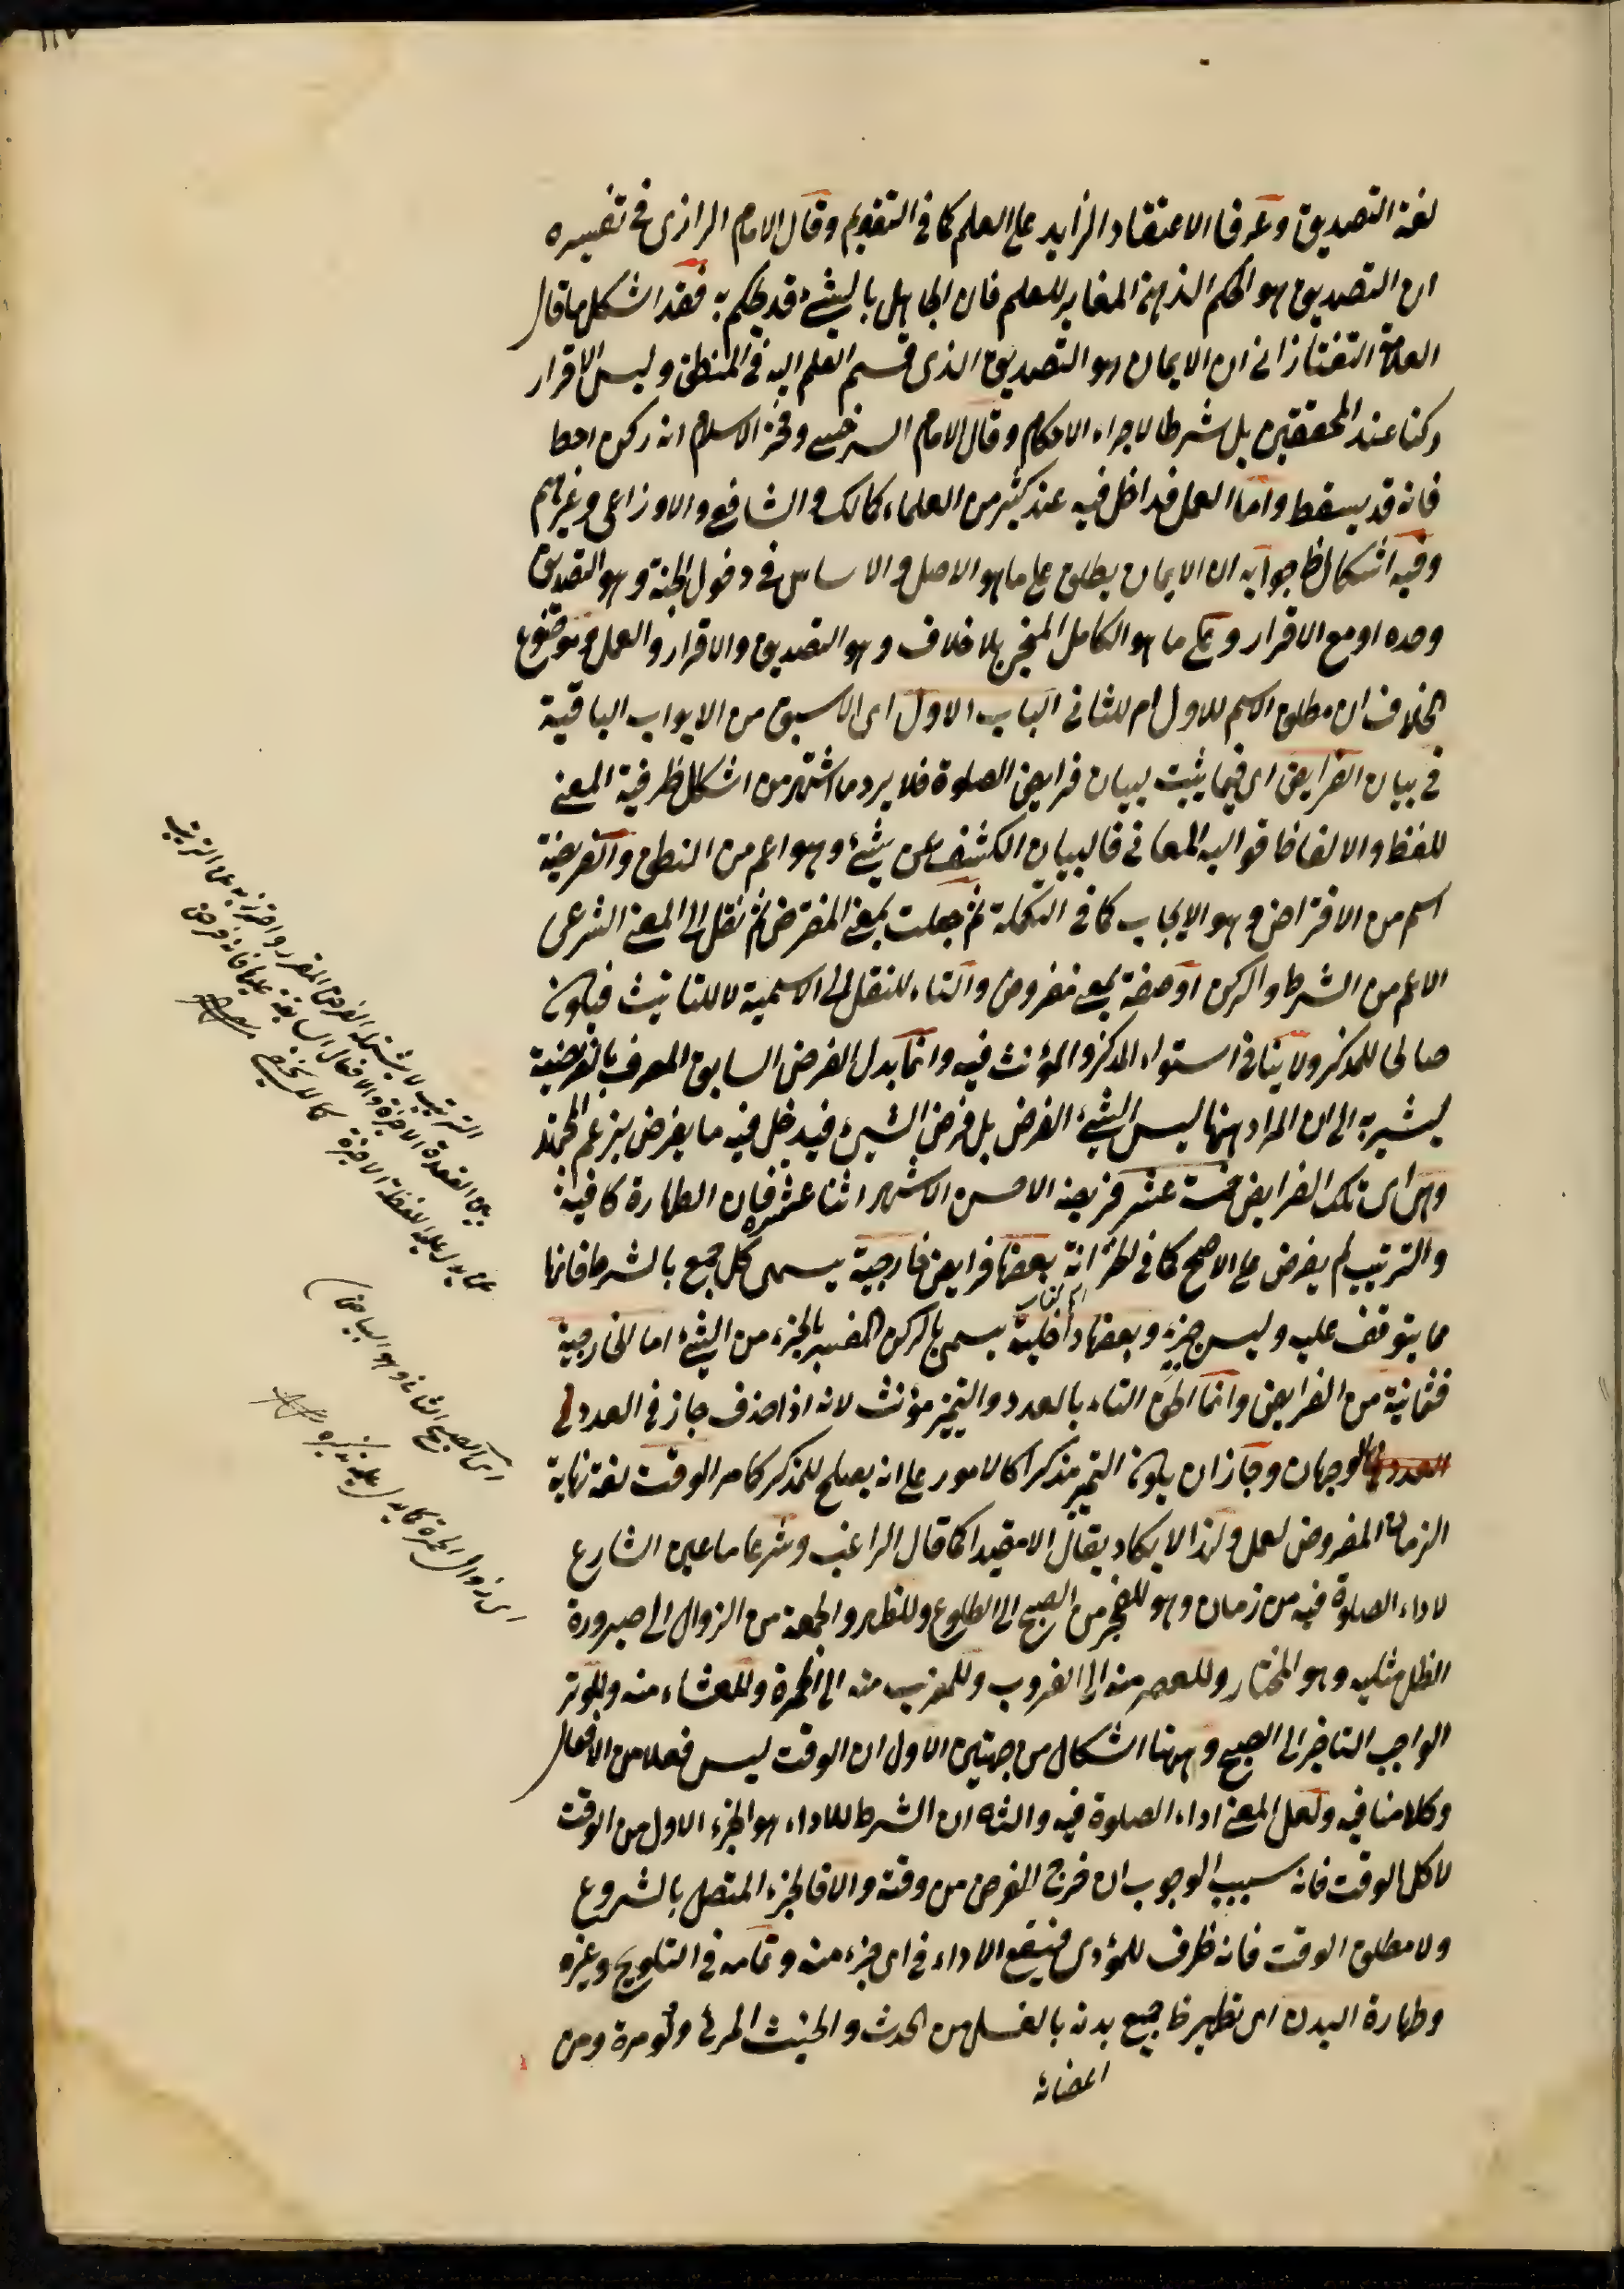 لغة التصديق وعرفا الاعتقاد الزايد على العلم كما في التقويم وقال الامام الرازى في تفسيره
ان التصديق هو الحكم الذهنى المغاير للعلم فان الجاهل بالشئ قد يحكم به فقد اشكل ما قال
العلامة التفتازانى ان الايمان هو التصديق الذى قسم العلم اليه في المنطق وليس الاقرار
ركنا عند المحققين بل شرطا لاجراء الاحكام وقال الامام السرخسى وفخر الاسلام انه ركن احط
فانه قد يسقط واما العمل فداخل فيه عند كثير من العلماء كمالك والشافعى والاوزاعى وغيرهم
وفيه اشكال ظ جوابه ان الايمان يطلق على ما هو الاصل والاساس في دخول الجنة وهو التصديق
وحده او مع الاقرار وعلى ما هو الكامل المنجى بلا خلاف وهو التصديق والاقرار والعمل وموضوع
الخلاف ان مطلق الاسم للاول ام للثانى الباب الاول اى الاسبق من الابواب الباقية
في بيان الفرايض اى فيما يثبت ببيان فرايض الصلوة فلا يرد ما اشتهر من اشكال ظرفية المعنى
للفظ والالفاظ قواليب المعانى فالبيان الكشف عن شئ وهو اعم من النطق والفريضة
اسم من الافتراض وهو الايجاب كما في التكملة ثم جعلت بمعنى المفترض ثم نقل الى المعنى الشرعى
الاعم من الشرط والركن او صفة بمعنى مفروض والتاء للنقل الى الاسمية لا للتانيث فيكون
صالحا للمذكر ولا ينافى استواء المذكر والمؤنث فيه وانما بدل الفرض السابق المعرف بالفريضة
ليشير به الى ان المراد ههنا ليس الشئ الفرض بل فرض الشئ فيدخل فيه ما يفرض بزعم المجتهد
وهى اى تلك الفرايض خمسة عشر فريضة الاحسن الاشهر اثنا عشر فان الطهارة كافية
والترتيب لم يفرض على الاصح كما في الخزانة بعضها فرايض خارجية يسمى كل جميع بالشرط فانها
مما يتوقف عليه وليس جزءه وبعضها داخلية يسمى بالركن المفسر بالجزء من الشئ اما الخارجية
فثمانية من الفرايض وانما الحق التاء بالعدد والتميز مؤنث لانه اذا حذف جاز في العدد
الوجهان وجاز ان يكون التميز مذكرا كالامور على انه يصلح للمذكر كما مر الوقت لغة نهاية
الزمان المفروض لعمل ولذا لا يكاد يقال الا مقيدا كما قال الراغب وشرعا ما عين الشارع
لاداء الصلوة فيه من زمان وهو للفجر من الصبح الى الطلوع وللظهر والجمعة من الزوال الى صيرورة
الظل مثليه وهو المختار وللعصر منه الى الغروب وللمغرب منه الى الحمرة وللعشاء منه وللوتر
الواجب التاخير الى الصبح وههنا اشكال من جهتين الاول ان الوقت ليس فعلا من الافعال
وكلامنا فيه ولعل المعنى اداء الصلوة فيه والثانى ان الشرط للاداء هو الجزء الاول من الوقت
لا كل الوقت فانه سبب الوجوب ان خرج الفرض من وقته والا فالجزء المتصل بالشروع
ولا مطلق الوقت فانه ظرف للمؤدى فيقع الاداء في اى جزء منه وتمامه في التلويح وغيره
وطهارة البدن اى تطهير ظ جميع بدنه بالغسل من الحدث والخبث المرئى ولو مرة ومن
اعضائه
الترتيب لا يشتمله الفرض المقرر واحترز به عن الترتيب
بين القعدة الاخيرة والافعال السابقة عليها فانه فرض
مما يدل عليه لفظة الاخيرة
اى الصبح الثانى وهو البياض
اى زوال الحمرة كما يدل عليه